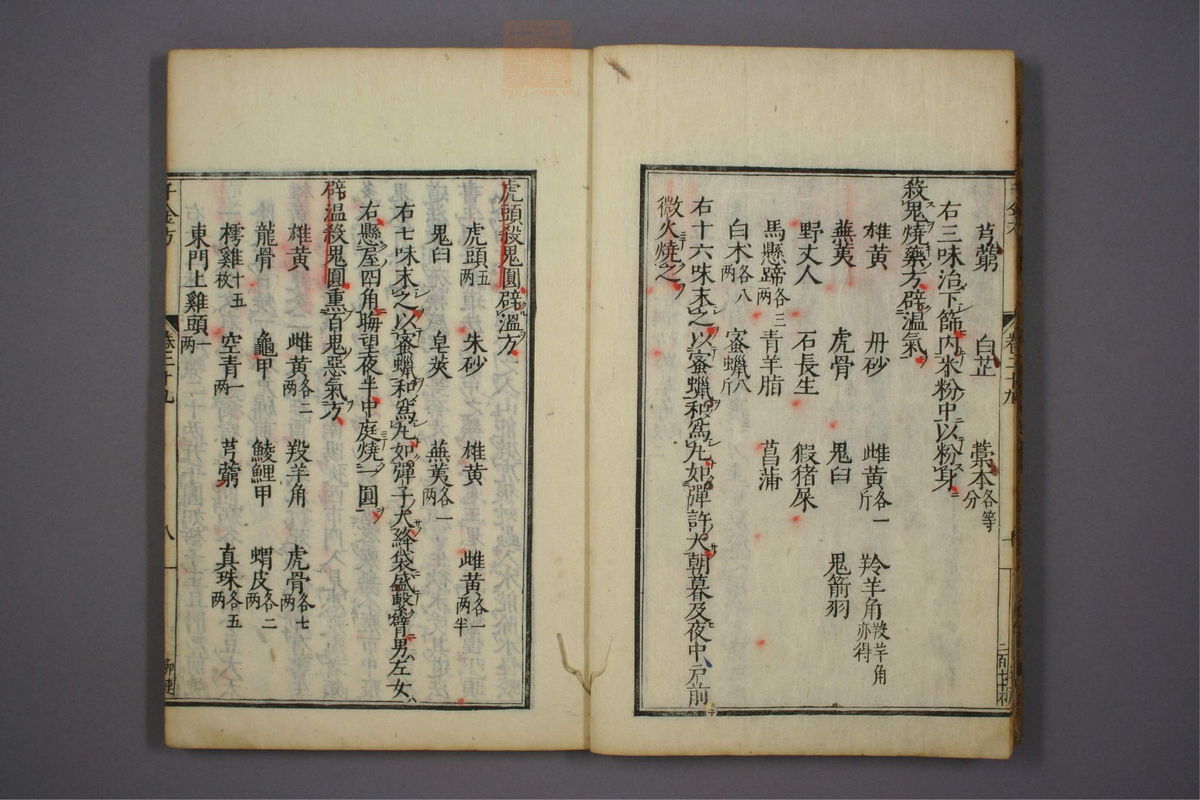 芎藭 白芷 藁本各等分
右三味治下篩内米粉中以粉身
殺鬼燒藥方辟温氣
雄黄 丹砂 雌黄各一斤 羚羊角羖羊角亦得
蕪荑 虎骨 鬼臼 鬼箭羽
野丈人 石長生 猳猪屎
馬懸蹄各三兩 青羊脂 菖蒲
白朮各八兩 蜜蠟八斤
右十六味末之以蜜蠟和爲丸如彈許大朝暮及夜中戶前
微火燒之
虎頭殺鬼圓辟温方
虎頭五兩 朱砂 雄黄 雌黄各一兩半
鬼臼 皁莢 蕪荑各一兩
右七味末之以蜜蠟和爲丸如彈子大絳袋盛繫臂男左女
右懸屋四角晦望夜半中庭燒一圓
辟温殺鬼圓熏百鬼惡氣方
雄黄 雌黄各二兩 羖羊角 虎骨各七兩
龍骨 龜甲 鯪鯉甲 蝟皮各二兩
樗雞十五枚 空青一兩 芎藭 真珠各五兩
東門上雞頭一兩
千金方 卷二十九 八